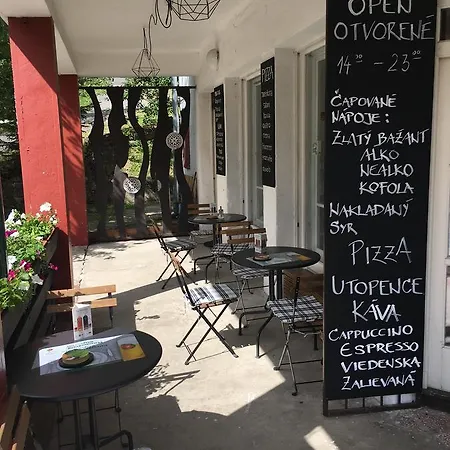 OPEN
OTVORENÉ
14³⁰ - 23⁰⁰
ČAPOVANÉ
NÁPOJE:
ZLATÝ BAŽANT
ALKO
NEALKO
KOFOLA
NAKLADANÝ
SYR
PIZZA
UTOPENCE
KÁVA
CAPPUCCINO
ESPRESSO
VIEDENSKÁ
ZALIEVANÁ
PIZZA